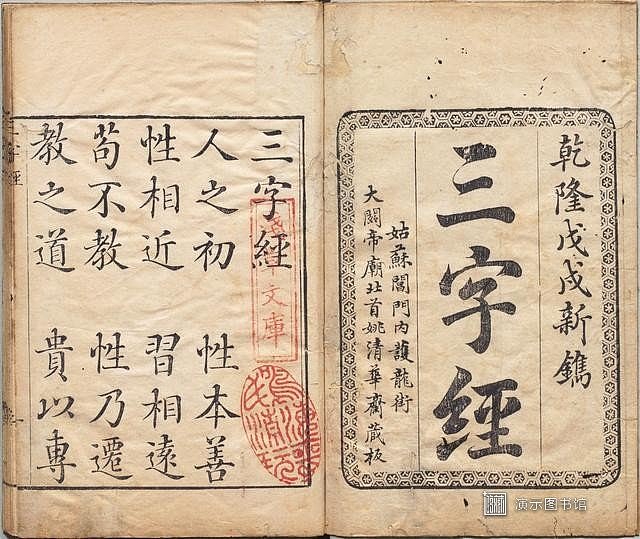 乾隆戊戌新鐫
三字經
姑蘇閶門內護龍街
大關帝廟北首姚清華齋藏板
三字經
人之初　性本善
性相近　習相遠
苟不教　性乃遷
教之道　貴以專
文庫
三字經
演示图书馆